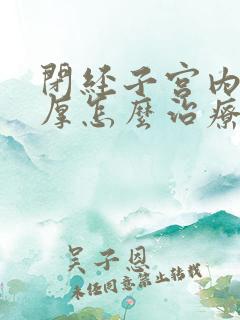 閉經子宮內
厚怎麼治療
吴子恩
未經同意禁止轉載